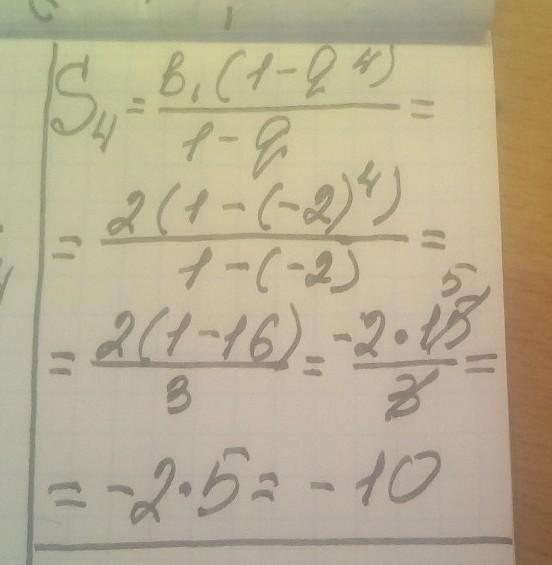 S₄ = b₁(1-q⁴)/1-q =
= 2(1-(-2)⁴)/1-(-2) =
= 2(1-16)/3 = -2·15 5/3 =
= -2·5 = -10